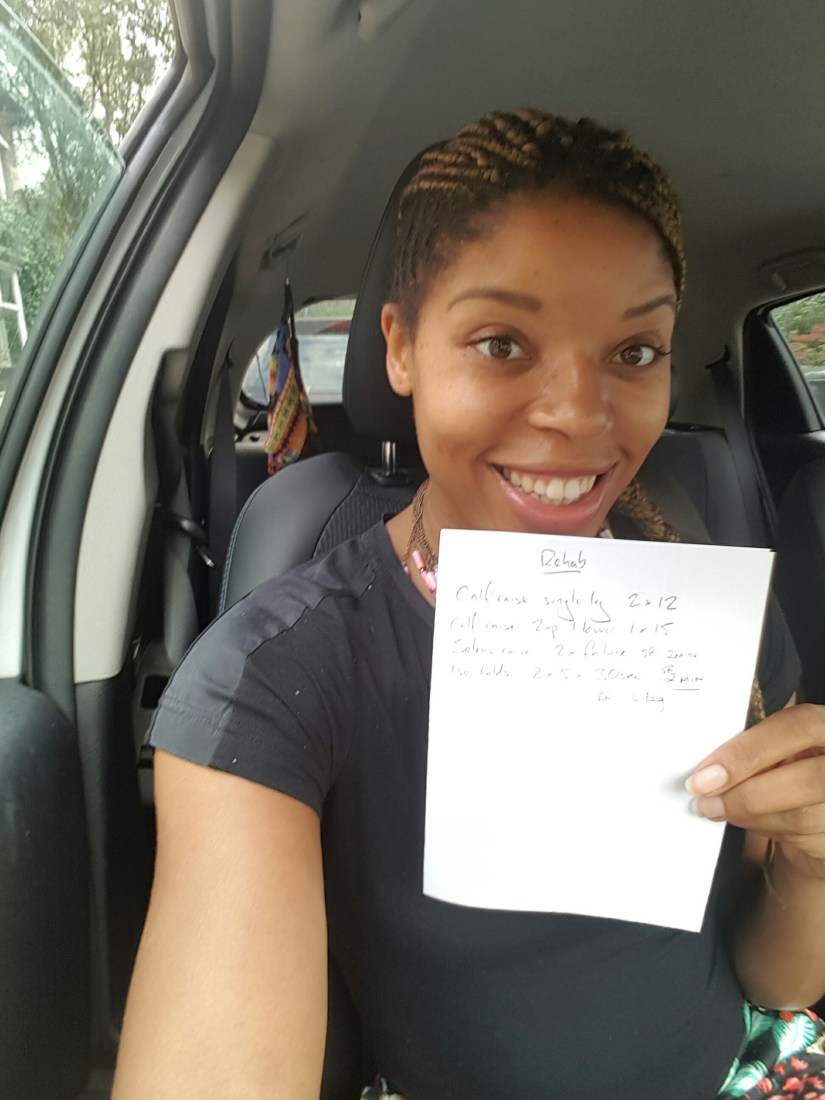 Rehab
Calf raise single leg 2 x 12
Calf raise 2up 1 lower 1 x 15
Soleus raise 2 x failure SR 2MIN
Iso holds 2 x 5 x 30sec SR 2 MIN
L Leg